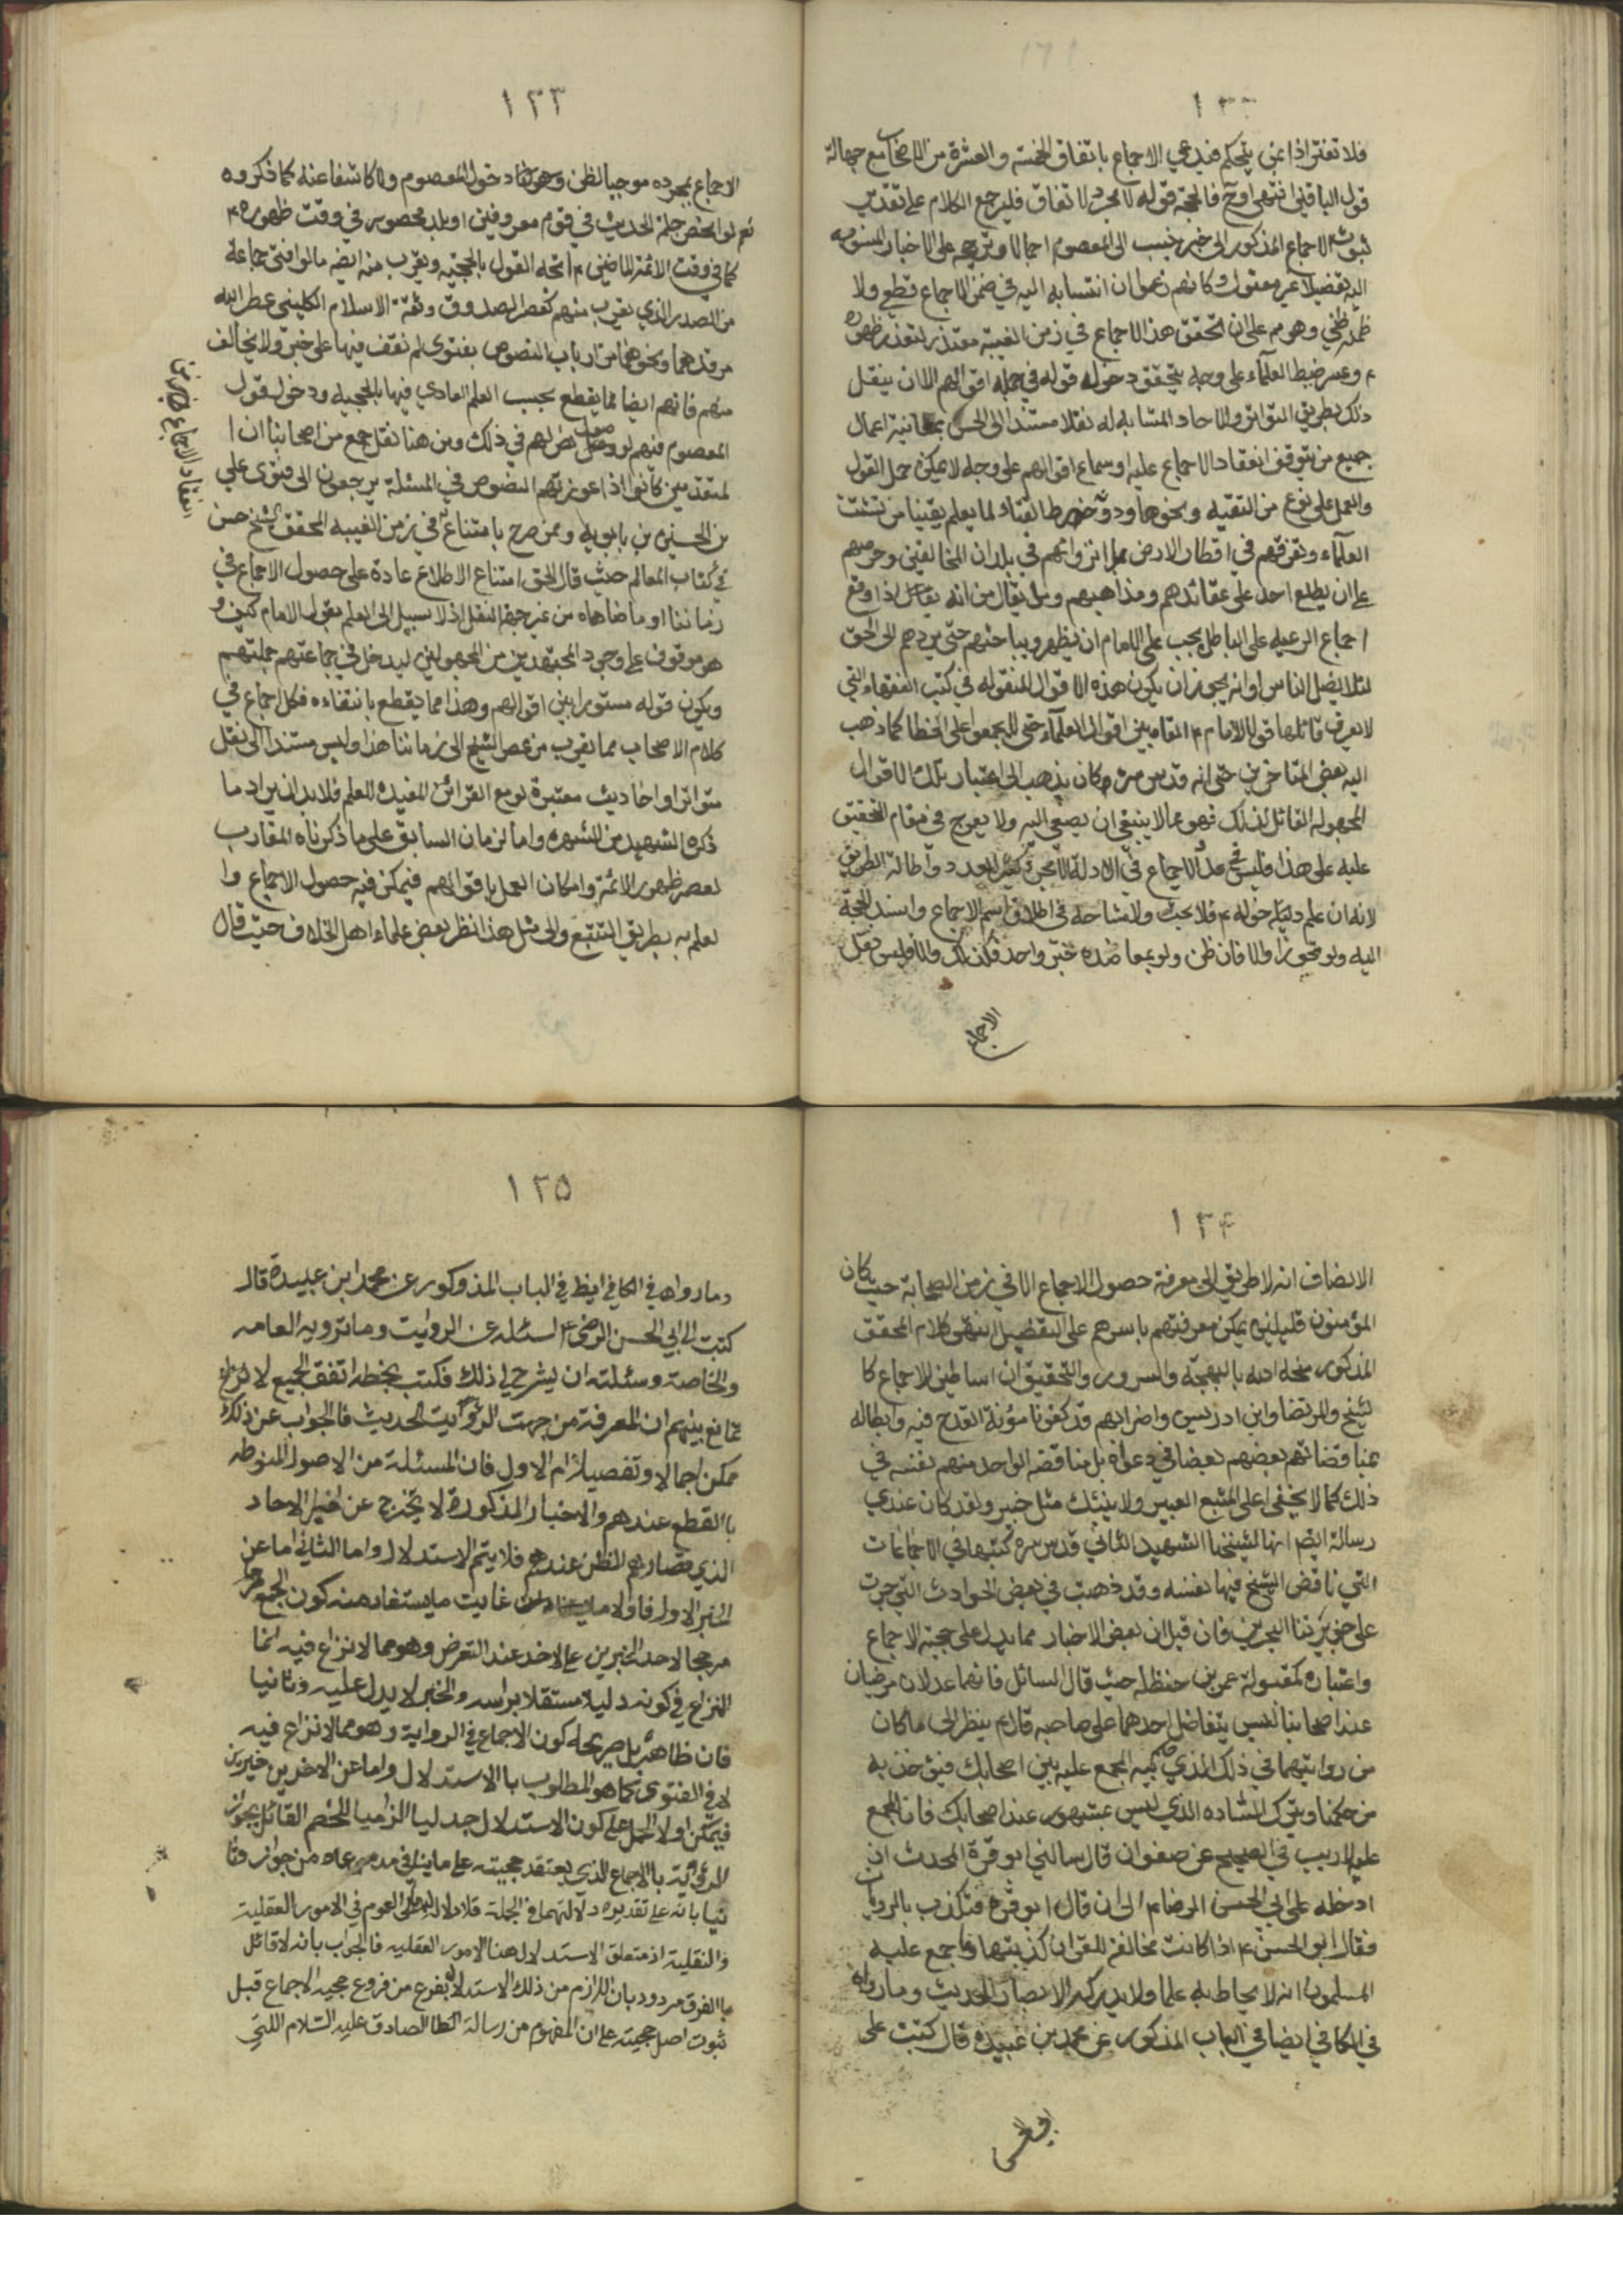 ١٣٢
فلا تغتر اذا بمن يتحكم فيدعي الاجماع باتفاق الخمسة والعشرة من الاصحاب مع جهالة
قول الباقين انتهى وح فالحجة قوله لا مجرد الاتفاق فليرجع الكلام على تقدير
ثبوت الاجماع المذكور الى خبر ينسب الى المعصوم اجمالا وترجيحه على الاخبار المنسوبه
اليه تفضيلا غير معقول وكانهم زعموا ان انتسابه اليه في ضمن الاجماع قطعي ولا
ظني وهو مم على ان تحقق هذا الاجماع في زمن الغيبة متعذر لتعذر ظهوره
ع وعسر ضبط العلماء على وجه يتحقق دخول قوله في جملة اقوالهم الا ان ينقل
ذلك بطريق التواتر والاحاد المشابه له نقلا مستندا الى الحس بمعانية اعمال
جميع من يتوقف انعقاد الاجماع عليه او سماع اقوالهم على وجه لا يمكن حمل القول
والعمل على نوع من التقيه ونحوها ودونه خرط القتاد لما يعلم يقينا من تشتت
العلماء وتفرقهم في اقطار الارض بل انزوائهم في بلدان المخالفين وحرصهم
على ان يطلع احد على عقائدهم ومذاهبهم وما يقال من انه اذا وقع
اجماع الرعيه على الباطل يجب على الامام ان يظهر ويباحثهم حتى يردهم الى الحق
لئلا يضل الناس او انه يجوز ان يكون هذه الاقوال المنقوله في كتب الفقهاء التي
لا يعرف قائلها قولا للامام ع القاه بين اقوال العلماء حتى لا يجمعوا على الخطا كما ذهب
اليه بعض المتاخرين حتى انه قدس سره كان يذهب الى اعتبار تلك الاقوال
المجهوله القائل لذلك فهو مما لا ينبغي ان يصغى اليه ولا يعرج في مقام التحقيق
عليه على هذا فليس في عد الاجماع في الادلة الا مجرد تكثير العدد واطالة الطريق
لانه ان علم دخوله ع فلا بحث ولا مشاحة في اطلاق اسم الاجماع واسند الحجة
اليه ولو تجوزا والا فان ظن ولو بمعاضده خبر واحد فكذلك والا فليس نقل
الاجماع
١٣٣
الاجماع بمجرده موجبا لظن دخول المعصوم ولا كاشفا عنه كما ذكروه
نعم لو انحصر جملة الحديث في قوم معروفين او بلد محصور في وقت ظهوره ع
كما في وقت الائمة الماضين ع اتجه القول بالحجيه ويقرب منه ايضه ما لو افتى جماعة
من الصدر الذي يقرب منهم كعصر الصدوق وثقة الاسلام الكليني عطر الله
مرقدهما ونحوهما من ارباب النصوص بفتوى لم نقف فيها على خبر ولا مخالف
منهم فانهم ايضا مما يقطع بحسب العلم العادي فيها بالحجيه ودخول قول
المعصوم فيهم لوصول نص لهم في ذلك ومن هنا نقل جمع من اصحابنا ان ا
لمتقدمين كانوا اذا اعوزتهم النصوص في المسئلة يرجعون الى فتوى علي
بن الحسين بن بابويه وممن صرح بامتناعه في زمن الغيبه المحقق الشيخ حسن
في كتاب المعالم حيث قال الحق امتناع الاطلاع عادة على حصول الاجماع في
زماننا او ما ضاهاه من غير جهة النقل اذ لا سبيل الى العلم بقول الامام كيف و
هو موقوف على وجود المجتهدين من المجهولين ليدخل في جماعتهم جملتهم
ويكون قوله مستورا بين اقوالهم وهذا مما يقطع بانتفاءه فكل اجماع في
كلام الاصحاب مما يقرب من عصر الشيخ الى زماننا هذا وليس مستندا الى نقل
متواترا واحاديث معتبرة لو مع القرائن المفيده للعلم فلا بد ان يراد ما
ذكره الشهيد من الشهره واما الزمان السابق على ما ذكرناه المقارب
لعصر ظهور الائمة وامكان العمل باقوالهم فيمكن فيه حصول الاجماع وا
لعلم به بطريق التتبع والى مثل هذا نظر بعض علماء اهل الخلاف حيث قال
١٣٤
الانصاف انه لا طريق الى معرفة حصول الاجماع الا في زمن الصحابة حيث كان
المؤمنون قليلين يمكن معرفتهم باسرهم على التفضيل انتهى كلام المحقق
المذكور منحه الله بالبهجة والسرور والتحقيق ان اساطين الاجماع كا
لشيخ والمرتضا وابن ادريس واضرابهم قد كفونا مؤنة القدح فيه وابطاله
بمناقضاتهم بعضهم بعضا في دعواه بل مناقضه الواحد منهم نفسه في
ذلك كما لا يخفى على المتبع البصير ولا ينبئك مثل خبير ولقد كان عندي
رسالة ايضه انها لشيخنا الشهيد الثاني قدس سره كتبها في الاجماعات
التي ناقض الشيخ فيها نفسه وقد ذهبت في بعض الحوادث التي جرت
على جزيرتنا البحرين فان قيل ان بعض الاخبار مما يدل على حجية الاجماع
واعتباره كمقبولة عمر بن حنظله حيث قال السائل فانهما عدلان مرضيان
عند اصحابنا ليس يتفاضل احدهما على صاحبه قال ع ينظر الى ما كان
من روايتهما في ذلك الذي حكما به المجمع عليه بين اصحابك فيؤخذ به
من حكمنا ويترك الشاذه الذي ليس بمشهور عند اصحابك فان المجمع
عليه لا ريب في الصحيح عن صفوان قال سالني ابو قرة المحدث ان
ادخله على ابي الحسن الرضا ع الى ان قال ابو قره فتكذب بالروايات
فقال ابو الحسن ع اذا كانت مخالفة للقران كذبتها وما جمع عليه
المسلمون انه لا يحاط به علما ولا يدركه الابصار الحديث وما رواه
في الكافي ايضا في الباب المذكور عن محمد بن عبيدة قال كتبت الى
ابي الحسن
١٣٥
وما رواه في الكافي ايظ في الباب المذوكور عن محمد ابن عبيدة قال
كتبت الى ابي الحسن الرضى ع اسئله عن الروايت وما ترويه العامه
والخاصة وسئلته ان يشرح لي ذلك فكتب بخطه اتفق الجميع لا
تمانع بينهم ان المعرفة من جهت الرؤايت الحديث فالجواب عن ذلك
ممكن اجمالا وتفصيلا ام الاول فان المسئلة من الاصول المنوطه
با القطع عندهم والاخبار المذكورة لا تخرج عن اخبار الاحاد
الذي قصاراهم الظن عندهم فلا يتم الاستدلال واما الثاني اما عن
الخبر الاول فاولا غايت ما يستفاد منه كون الجمع
مرجحا لاحد الخبرين على الاخد عند التعرض وهو مما لا نزاع فيه انما
النزاع في كونه دليلا مستقلا براسه والخبر لا يدل عليه وثانيا
فان ظاهره بل صريحه كون الاجماع في الرواية وهو مما لا نزاع فيه
لا في الفتوى كما هو المطلوب با الاستدلال واما عن الاخرين خيرين
فيمكن اولا الحمل على كون الاستدلال جدليا الزاميا للخصم القائل بجواز
الرؤية با الاجماع الذي يعتقد حجيته على ما ينافي مدعاه من جوازه وثا
نيا بانه على تقدير دلالتهما في الجملة فلا دلاله لهما على العموم في الامور العقلية
والنقلية اذ متعلق الاستدلال هنا الامور العقليه فالجواب بانه لا قائل
با الفرق مردود بان اللازم من ذلك الاستدلال بفوع من فروع حجيه الاجماع قبل
ثبوت اصل حجيته على ان المفهوم من رسالة الصادق عليه السلام اللتي